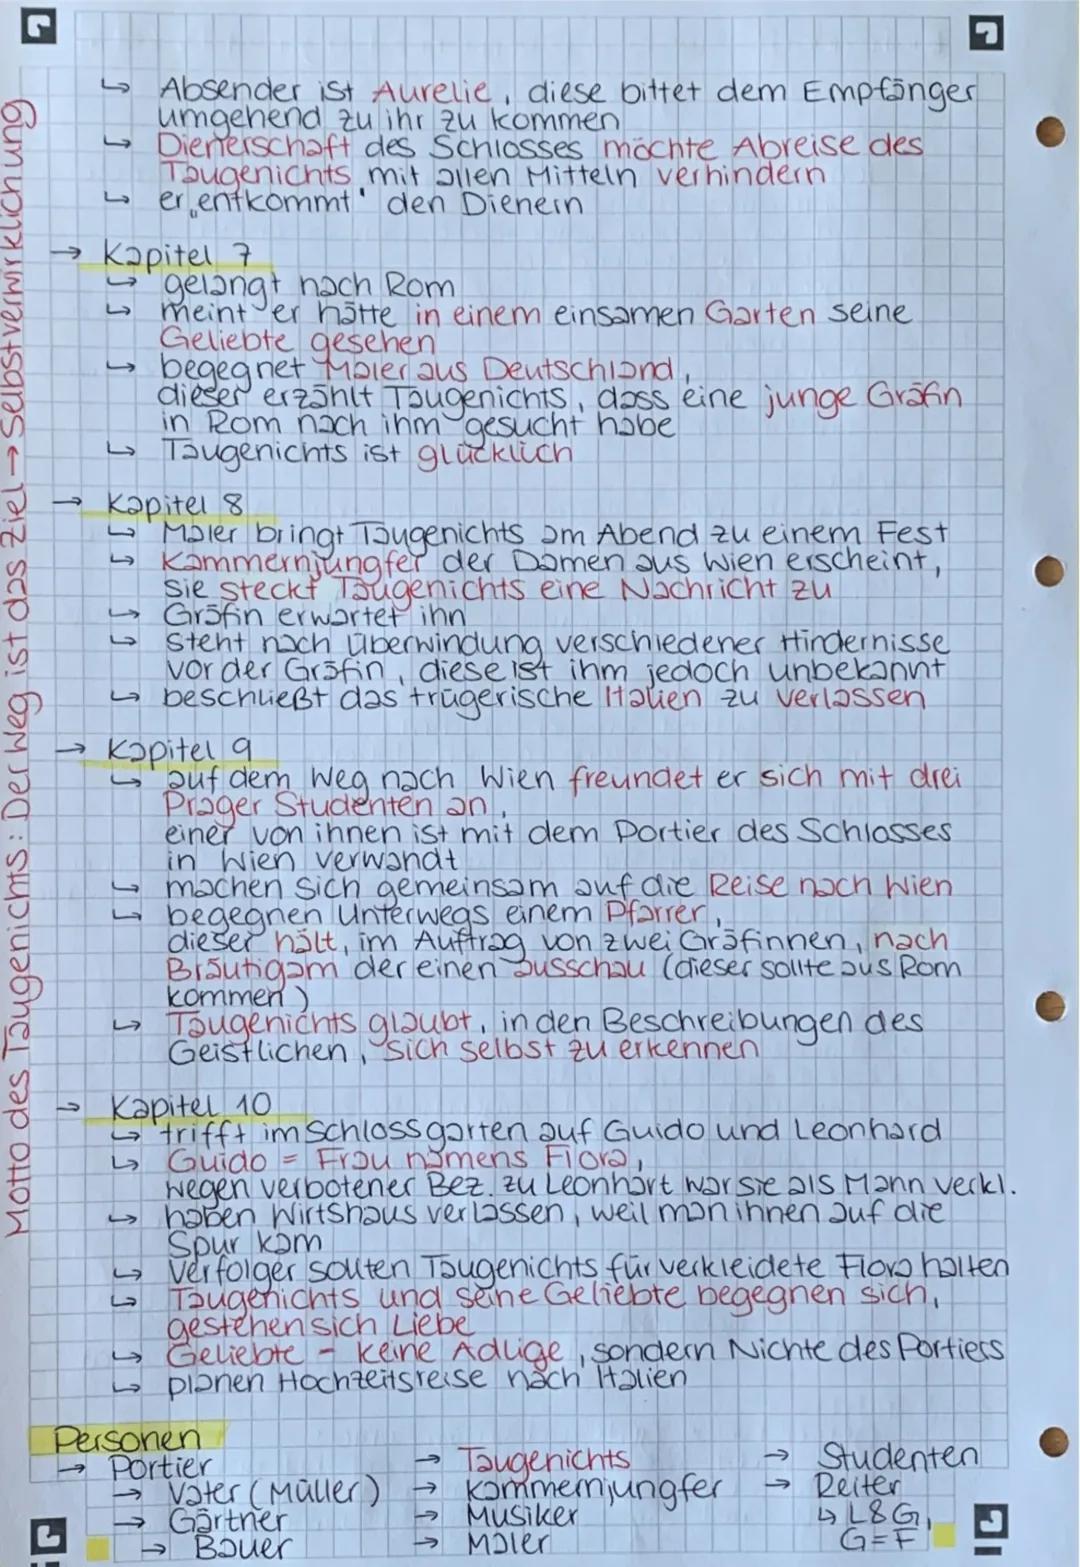 ↳ Absender ist Aurelie, diese bittet dem Empfänger
umgehend zu ihr zu kommen
↳ Dienerschaft des Schlosses möchte Abreise des
Taugenichts mit allen Mitteln verhindern
↳ er „entkommt" den Dienern
→ Kapitel 7
↳ gelangt nach Rom
↳ meint er hätte in einem einsamen Garten seine
Geliebte gesehen
↳ begegnet Maler aus Deutschland,
dieser erzählt Taugenichts, dass eine junge Gräfin
in Rom nach ihm gesucht habe
↳ Taugenichts ist glücklich
→ Kapitel 8
↳ Maler bringt Taugenichts am Abend zu einem Fest
↳ Kammernjungfer der Damen aus Wien erscheint,
sie steckt Taugenichts eine Nachricht zu
↳ Gräfin erwartet ihn
↳ steht nach Überwindung verschiedener Hindernisse
vor der Gräfin, diese ist ihm jedoch unbekannt
↳ beschließt das trügerische Italien zu verlassen
→ Kapitel 9
↳ auf dem Weg nach Wien freundet er sich mit drei
Prager Studenten an,
einer von ihnen ist mit dem Portier des Schlosses
in Wien verwandt
↳ machen sich gemeinsam auf die Reise nach Wien
↳ begegnen unterwegs einem Pfarrer,
dieser hält, im Auftrag von zwei Gräfinnen, nach
Bräutigam der einen ausschau (dieser sollte aus Rom
kommen)
↳ Taugenichts glaubt, in den Beschreibungen des
Geistlichen, sich selbst zu erkennen
→ Kapitel 10
↳ trifft im Schlossgarten auf Guido und Leonhard
↳ Guido = Frau namens Flora,
wegen verbotener Bez. zu Leonhart war sie als Mann verkl.
↳ haben Wirtshaus verlassen, weil man ihnen auf die
Spur kam
↳ Verfolger sollten Taugenichts für verkleidete Flora halten
↳ Taugenichts und seine Geliebte begegnen sich,
gestehen sich Liebe
↳ Geliebte - keine Adlige, sondern Nichte des Portiers
↳ planen Hochzeitsreise nach Italien
Personen
→ Portier → Taugenichts → Studenten
→ Vater (Müller) → Kammernjungfer → Reiter
→ Gärtner → Musiker ↳ L&G,
→ Bauer → Maler G=F
Motto des Taugenichts: Der Weg ist das Ziel → Selbstverwirklichung